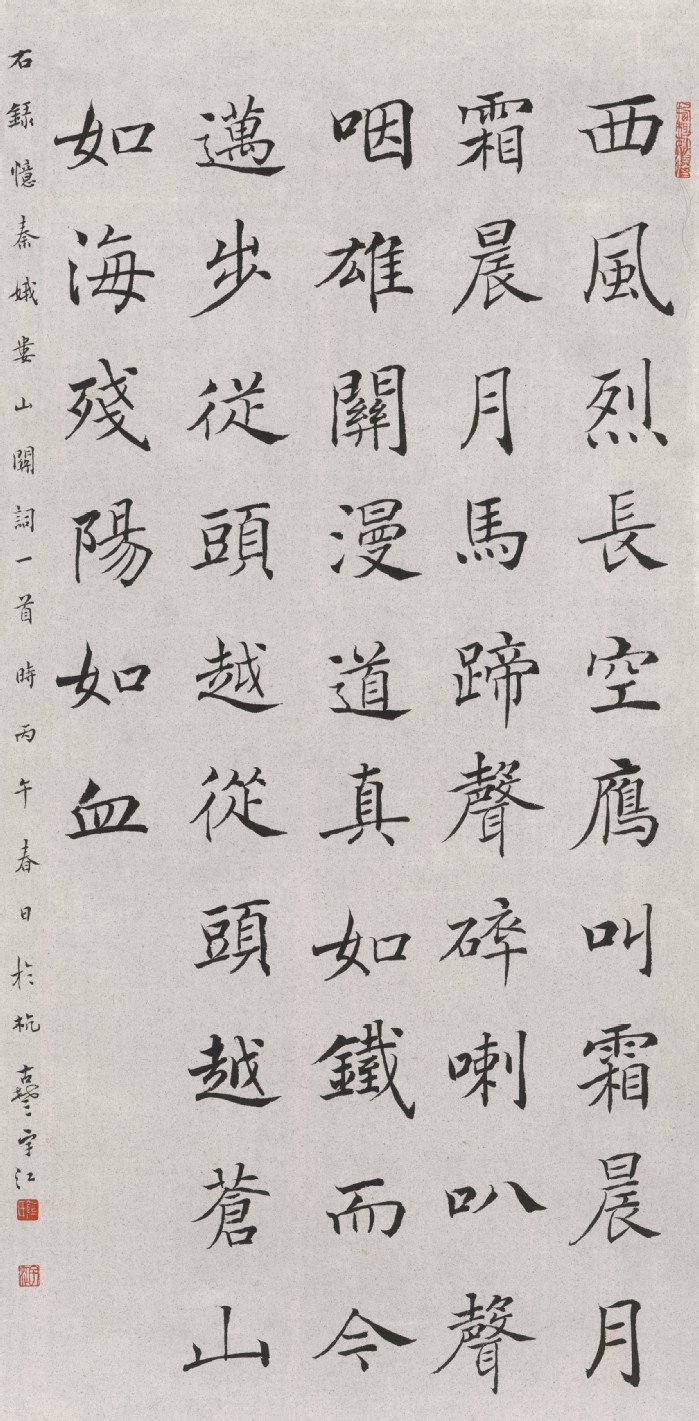 西風烈長空鴈叫霜晨月
霜晨月馬蹄聲碎喇叭聲
咽雄關漫道真如鐵而今
邁步從頭越從頭越蒼山
如海殘陽如血
右録憶秦娥婁山關詞一首時丙午春日於杭 宇江